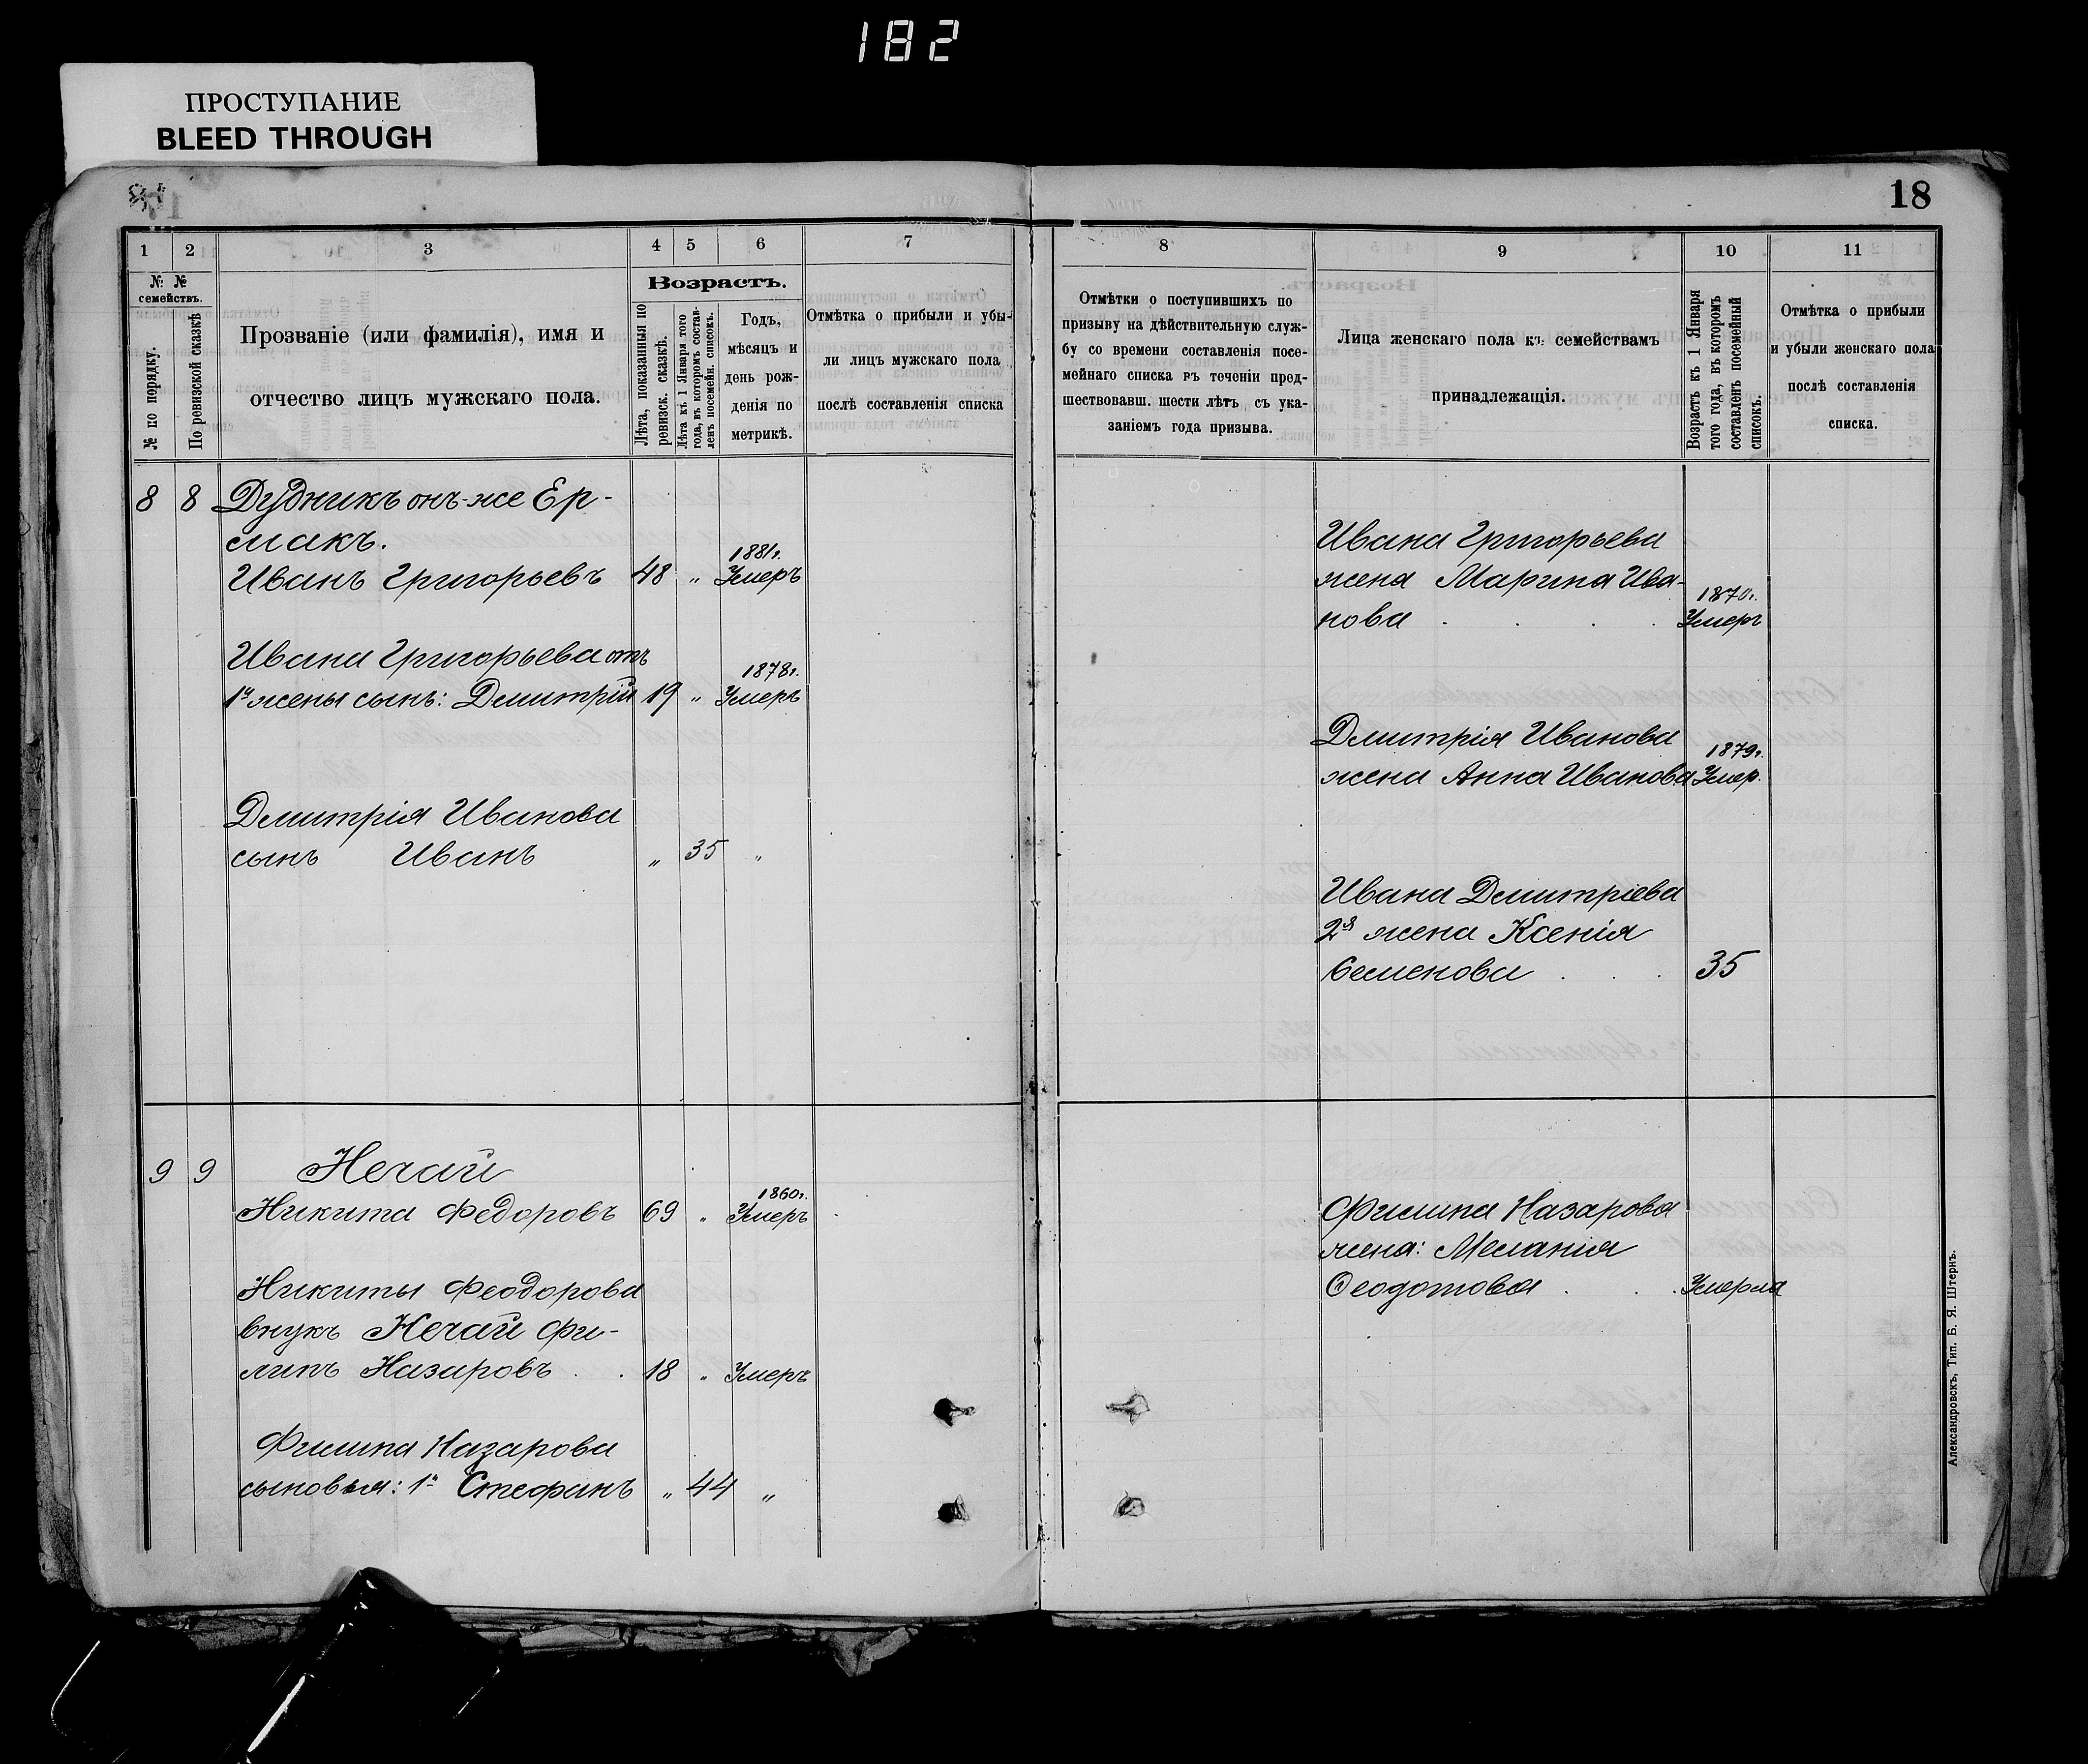 182
ПРОСТУПАНИЕ
BLEED THROUGH
18
1 2 3 4 5 6 7
№ № семействъ.
№ по порядку.
По ревизской сказкѣ
Прозваніе (или фамилія), имя и
отчество лицъ мужскаго пола.
Возрастъ.
Лѣта, показанныя по
ревизск. сказкѣ.
Лѣта къ 1 Января того
года, въ которомъ состав-
ленъ посемейн. списокъ.
Годъ,
мѣсяцъ и
день рож-
денія по
метрикѣ.
Отмѣтка о прибыли и убы-
ли лицъ мужскаго пола
послѣ составленія списка
8 8 Дудникъ онъ-же Ер-
макъ.
1881г.
Иванъ Григорьевъ 48 „ Умеръ
Ивана Григорьева отъ
1878г.
1й жены сынъ: Дмитрій 19 „ Умеръ
Дмитрія Иванова
сынъ Иванъ „ 35 „
9 9 Нечай
1860г.
Никита Федоровъ 69 „ Умеръ
Никиты Феодорова
внукъ Нечай Фи-
липъ Назаровъ . . 18 „ Умеръ
Филипа Назарова
сыновья: 1й Стефанъ „ 44 „
8 9 10 11
Отмѣтки о поступившихъ по
призыву на дѣйствительную служ-
бу со времени составленія посе-
мейнаго списка въ теченіи пред-
шествовавш. шести лѣтъ съ ука-
заніемъ года призыва.
Лица женскаго пола къ семействамъ
принадлежащія.
Возрастъ къ 1 Января
того года, въ которомъ
составленъ посемейный
списокъ.
Отмѣтка о прибыли
и убыли женскаго пола
послѣ составленія
списка.
Ивана Григорьева
жена Марина Ива-
1870г.
нова . . . . Умеръ
Дмитрія Иванова
1879г.
жена Анна Иванова Умер.
Ивана Дмитріева
2я жена Ксенія
Семенова . . . 35
Филипа Назарова
жена: Меланія
Ѳеодотова . . . Умерла
Александровскъ, Тип. Б. Я. Штернъ.